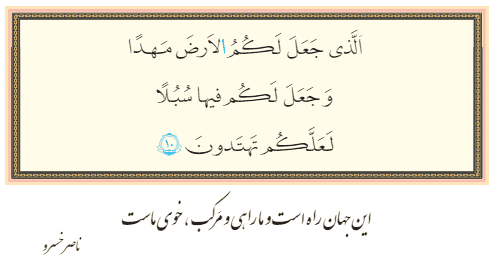 اَلَّذی جَعَلَ لَکُمُ الاَرضَ مَهدًا
وَ جَعَلَ لَکُم فیها سُبُلًا
لَعَلَّکُم تَهتَدونَ ۱۰
این جهان راه است و ما راهی و مَرکب، خوی ماست
ناصر خسرو